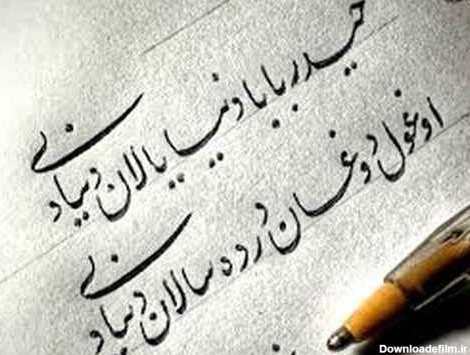 حیدربابا دنیا یالان دنیادی
اوغول دوغان درده سالان دنیادی
Downloadefilm.ir